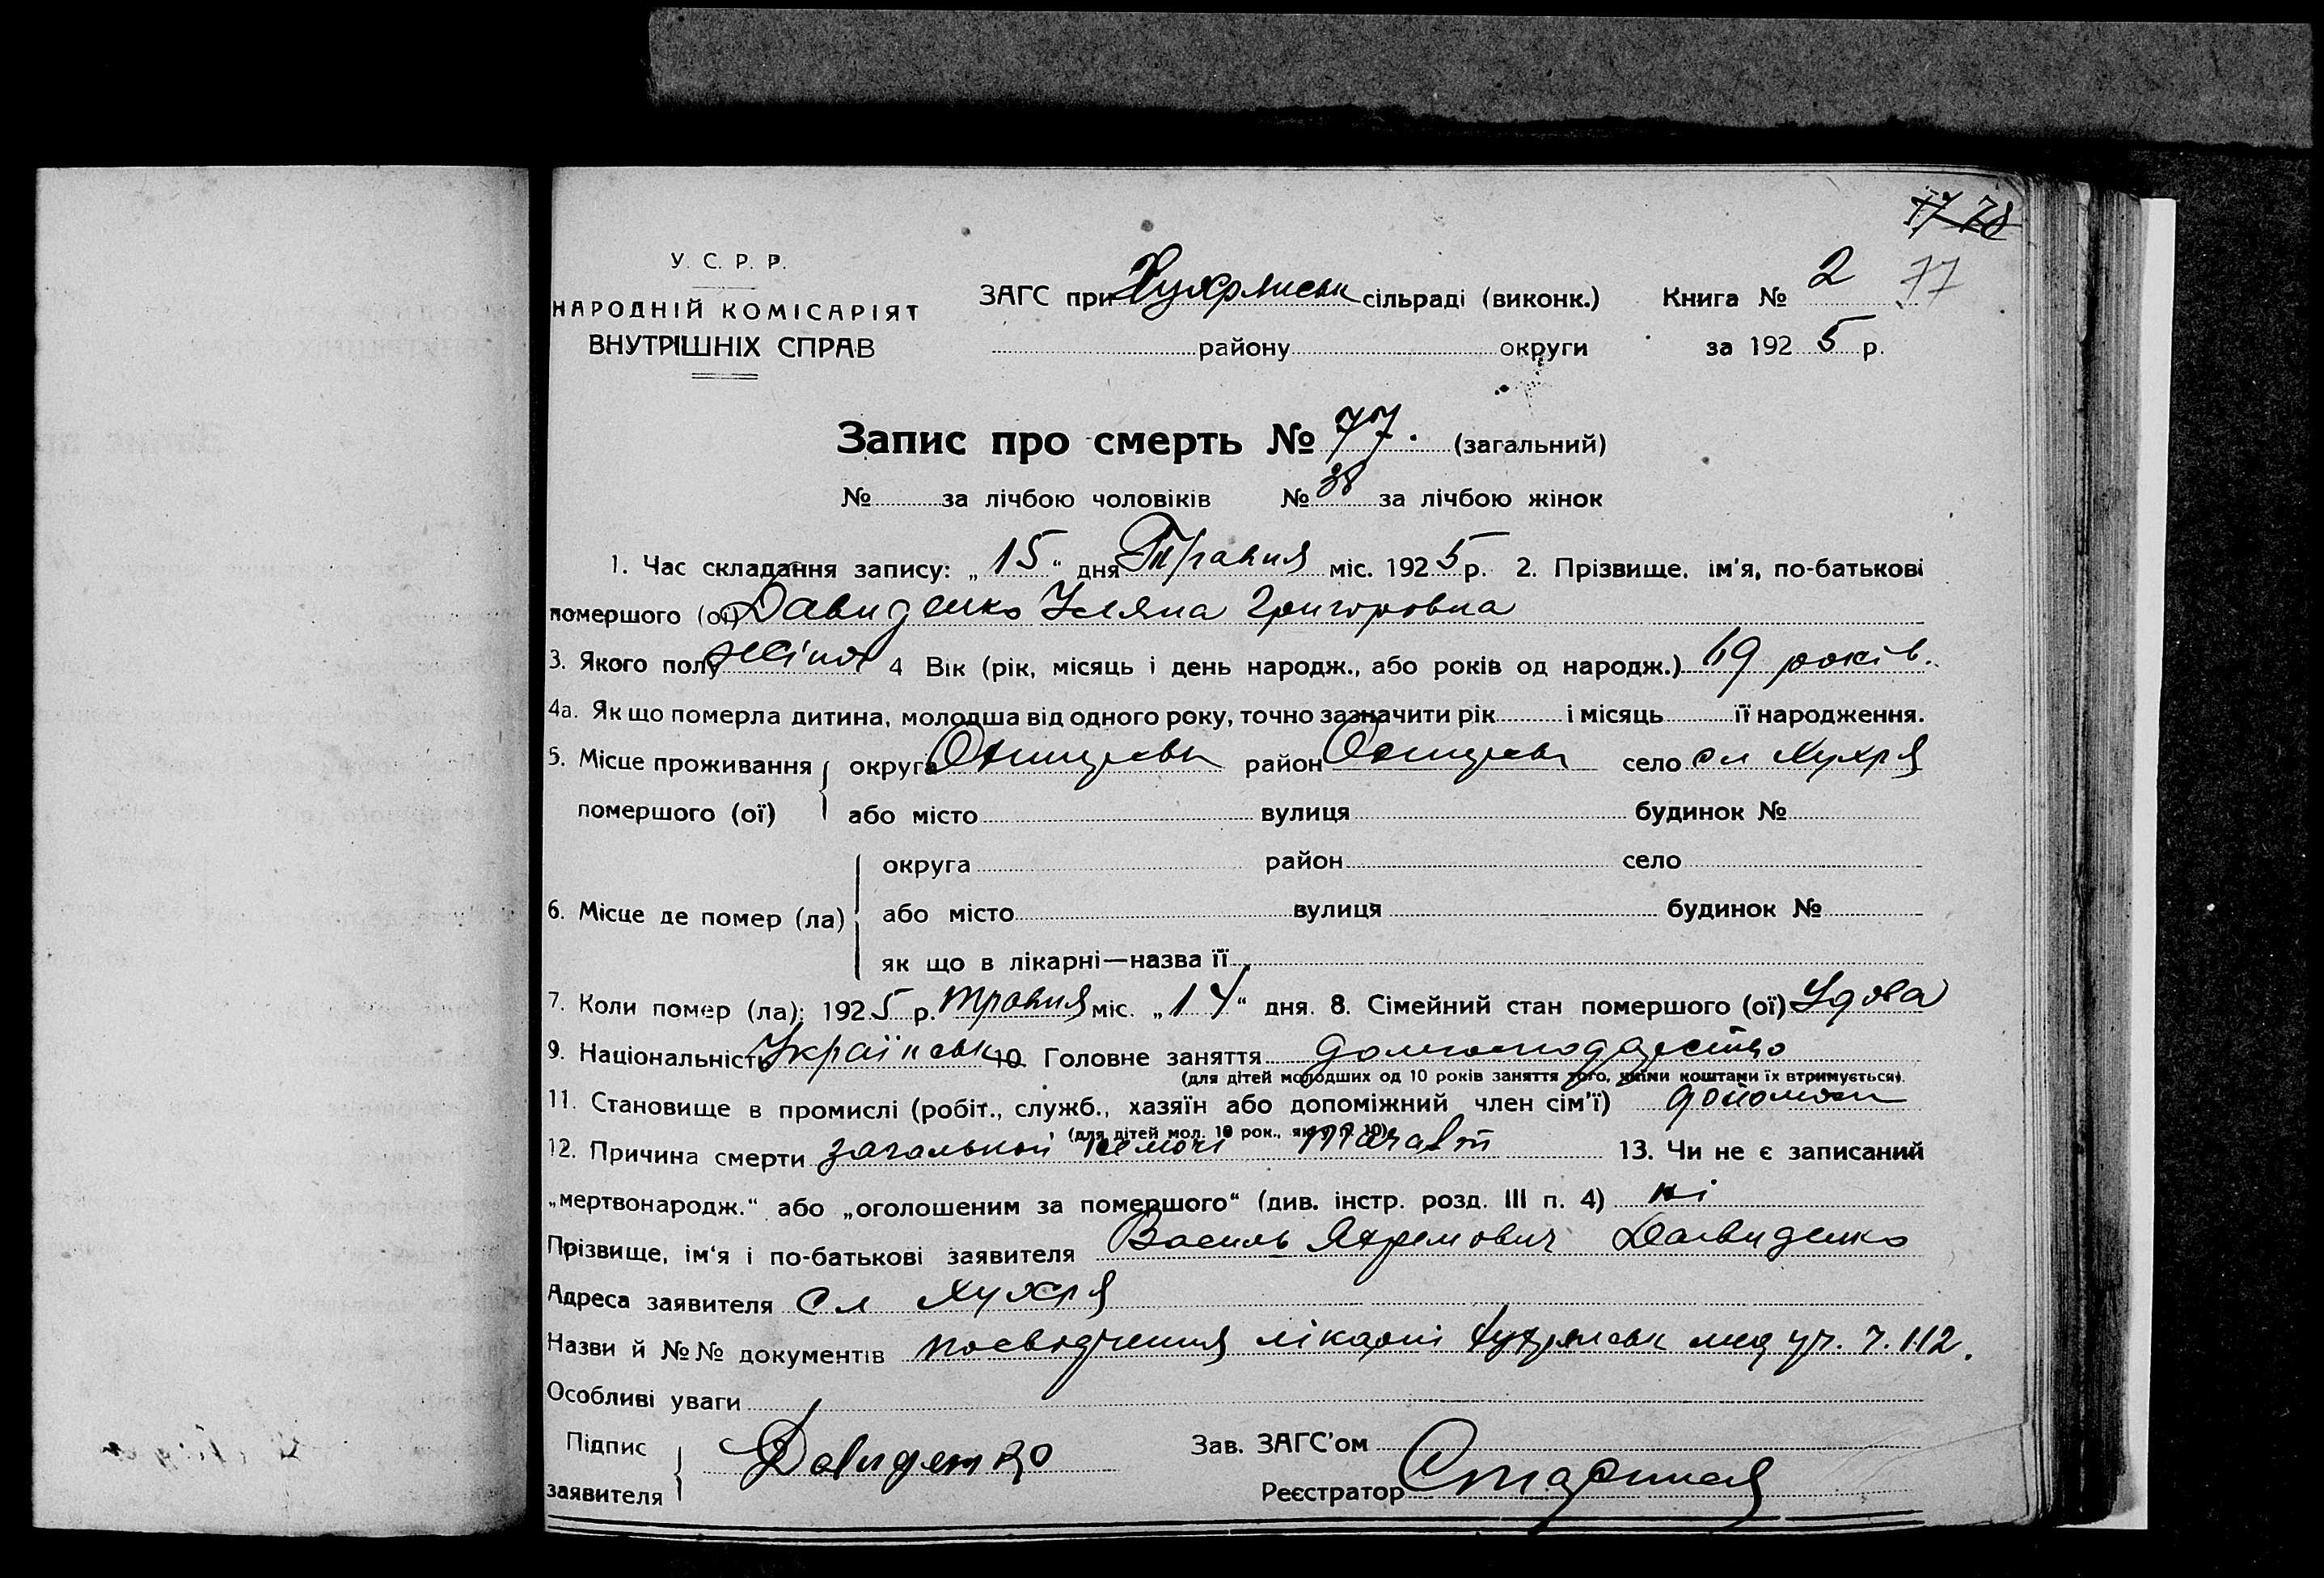 77 78
У. С. Р. Р.
НАРОДНІЙ КОМІСАРІЯТ
ВНУТРІШНІХ СПРАВ
ЗАГС при Хухрянськ сільраді (виконк.) Книга № 2 77
району округи за 1925 р.
Запис про смерть № 77. (загальний)
№ за лічбою чоловіків № 38 за лічбою жінок
1. Час складання запису: „15" дня Травня міс. 1925 р. 2. Прізвище, ім'я, по-батькові
помершого (ої) Давиденко Уляна Григоровна
3. Якого полу жіноч 4 Вік (рік, місяць і день народж., або років од народж.) 69 років.
4а. Як що померла дитина, молодша від одного року, точно зазначити рік і місяць її народження.
5. Місце проживання округа район село сл Хухря
помершого (ої) або місто вулиця будинок №
округа район село
6. Місце де помер (ла) або місто вулиця будинок №
як що в лікарні—назва її
7. Коли помер (ла): 1925 р. травня міс. „14" дня. 8. Сімейний стан помершого (ої) Удова
9. Національність Українськ 10 Головне заняття
(для дітей молодших од 10 років заняття того, чиїми коштами їх втримується).
11. Становище в промислі (робіт., служб., хазяїн або допоміжний член сім'ї)
(для дітей мол. 10 рок., як у п. 10).
12. Причина смерти загальной немочі 13. Чи не є записаний
„мертвонародж." або „оголошеним за помершого" (див. інстр. розд. III п. 4) ні
Прізвище, ім'я і по-батькові заявителя Василь Яхремович Давиденко
Адреса заявителя Сл Хухря
Назви й №№ документів посвідчення лікарні Хухрянськ мед уч. ч. 112.
Особливі уваги
Підпис
заявителя Давиденко
Зав. ЗАГС'ом
Реєстратор